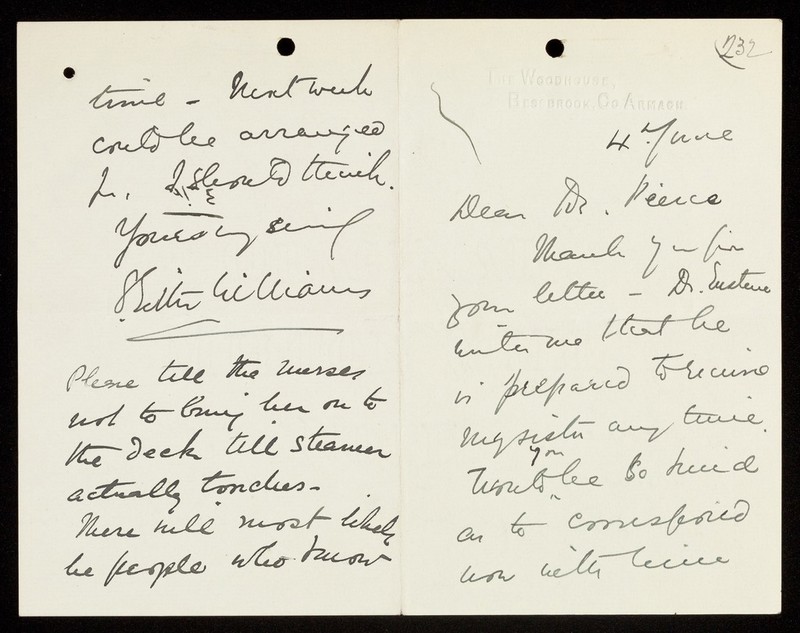 232
The Woodhouse,
Bessbrook, Co Armagh.
4th June
Dear Dr. Pierce
Thank you for
your letter – Dr. Eustace
writes me that he
is prepared to receive
my sister any time.
Would you be so kind
as to correspond
now with him
time – Next week
could be arranged
I should think.
Yours very sincly
Williams
Please tell the nurses
not to bring her on to
the deck till steamer
actually touches –
There will most likely
be people who know